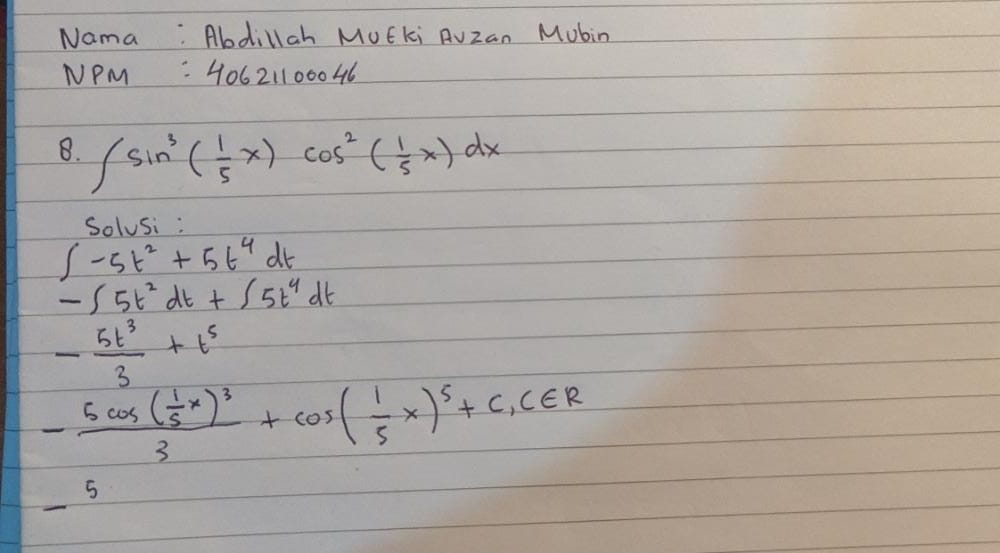 Nama : Abdillah Mufki Auzan Mubin
NPM : 40621100046
8. ∫ sin³ (1/5 x) cos² (1/5 x) dx
Solusi :
∫ -5t² + 5t⁴ dt
- ∫ 5t² dt + ∫ 5t⁴ dt
- 5t³/3 + t⁵
- 5 cos (1/5 x)³/3 + cos (1/5 x)⁵ + C, C ∈ R
- 5